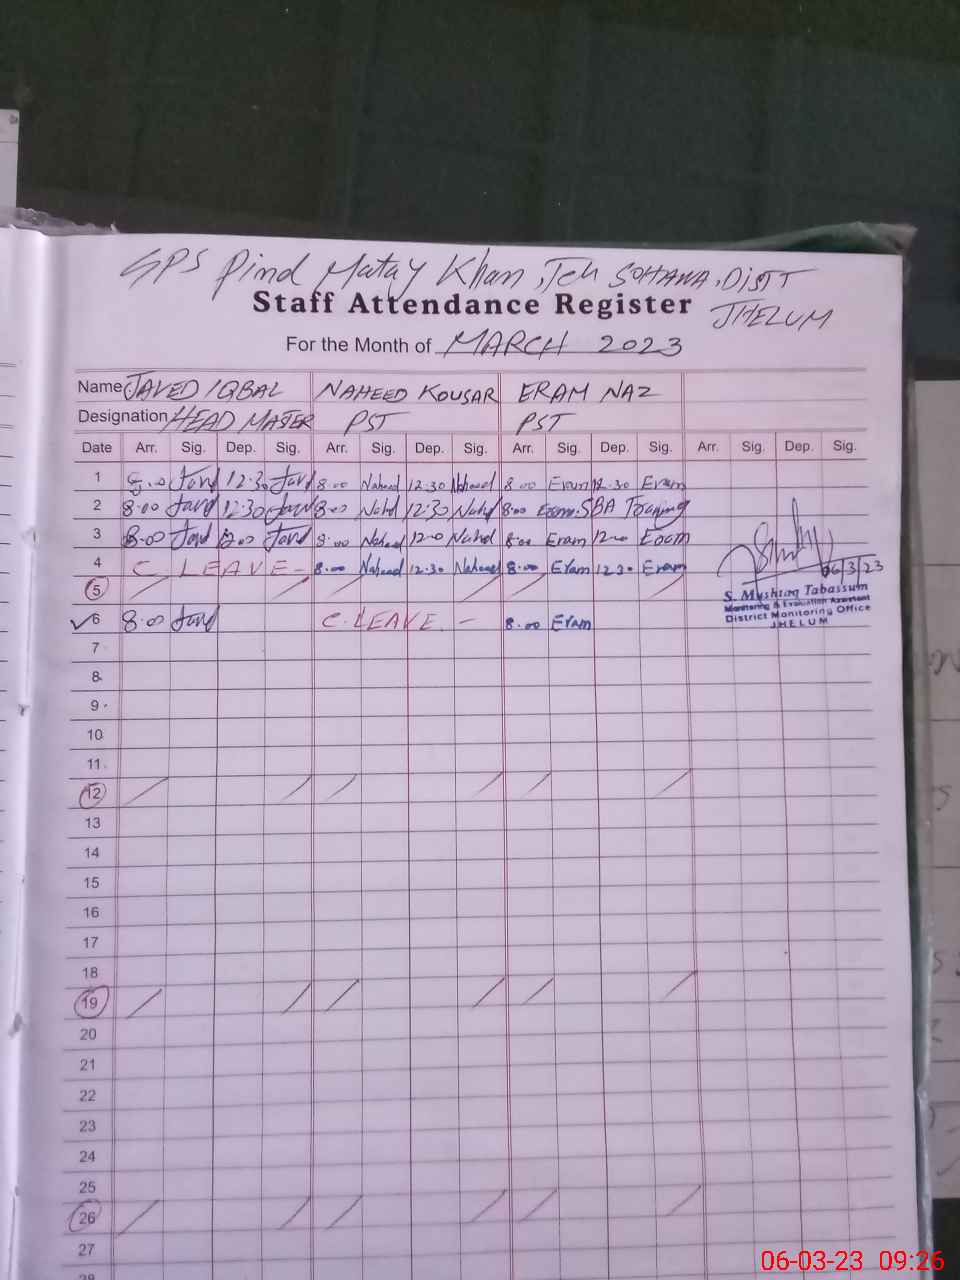 GPS Pind Matay Khan, Teh SOHAWA, DISTT
Staff Attendance Register JHELUM
For the Month of MARCH 2023
Name JAVED IQBAL NAHEED KOUSAR ERAM NAZ
Designation HEAD MASTER PST PST
Date Arr. Sig. Dep. Sig. Arr. Sig. Dep. Sig. Arr. Sig. Dep. Sig. Arr. Sig. Dep. Sig.
1 8.00 Javd 12.30 Javd 8.00 Naheed 12.30 Naheed 8.00 Eram 12.30 Eram
2 8.00 Javd 12.30 Javd 8.00 Nahd 12.30 Nahd 8.00 Eram SBA Training
3 8.00 Javd 12.00 Javd 8.00 Naheed 12.00 Nahd 8.00 Eram 12.00 Eram
4 C. LEAVE - 8.00 Naheed 12.30 Naheed 8.00 Eram 12.30 Eram
06/3/23
5
S. Mushtaq Tabassum
Monitoring & Evaluation Assistant
District Monitoring Office
JHELUM
✓6 8.00 Javd C. LEAVE. - 8.00 Eram
7
8
9
10
11
12
13
14
15
16
17
18
19
20
21
22
23
24
25
26
27
28
06-03-23 09:26